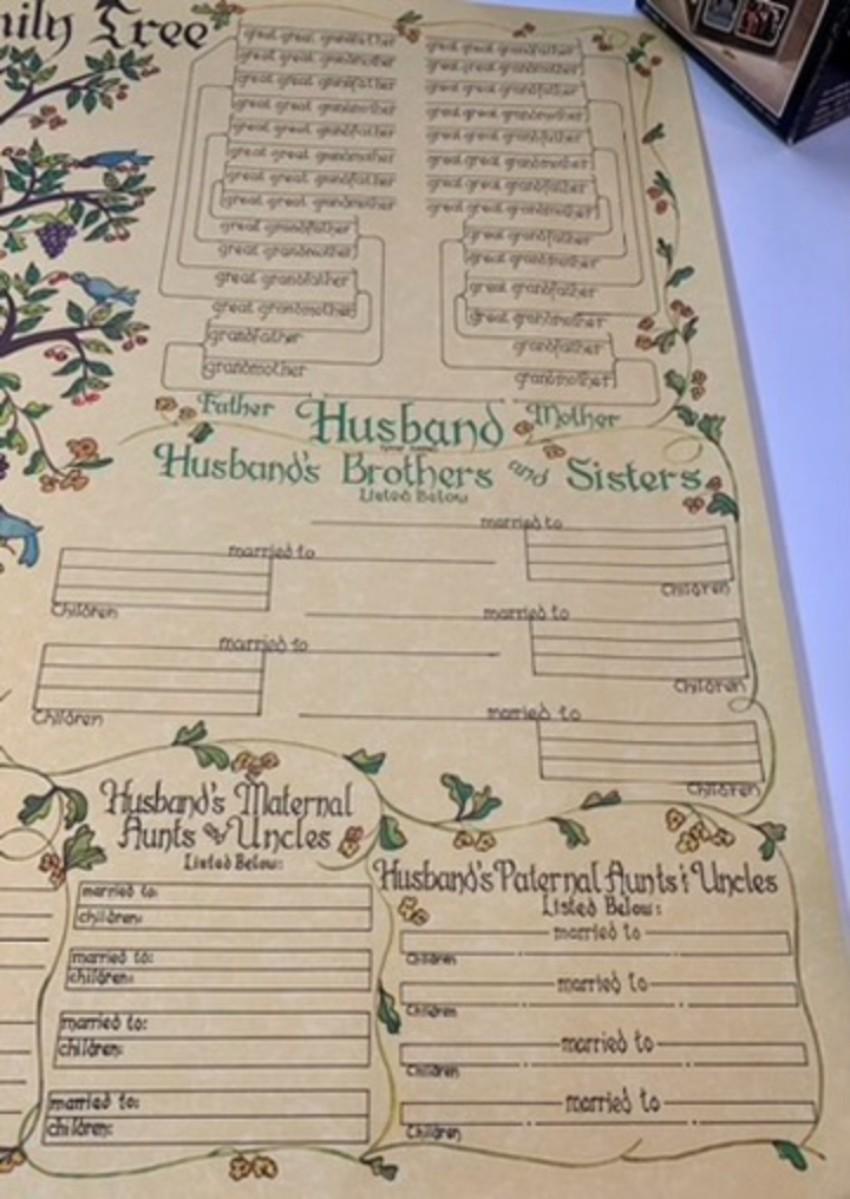 ily Tree
great great grandfather
great great grandmother
great great grandfather
great great grandmother
great great grandfather
great great grandmother
great great grandfather
great great grandmother
great grandfather
great grandmother
great grandfather
great grandmother
grandfather
grandmother
great great grandfather
great great grandmother
great great grandfather
great great grandmother
great great grandfather
great great grandmother
great great grandfather
great great grandmother
great grandfather
great grandmother
great grandfather
great grandmother
grandfather
grandmother
Father Husband Mother
Husband's Brothers and Sisters
Listed Below
married to
married to
Children
Children
married to
married to
Children
Children
married to
Children
Husband's Maternal
Aunts & Uncles
Listed Below:
married to:
children:
married to:
children:
married to:
children:
married to:
children:
Husband's Paternal Aunts & Uncles
Listed Below:
married to
Children
married to
Children
married to
Children
married to
Children